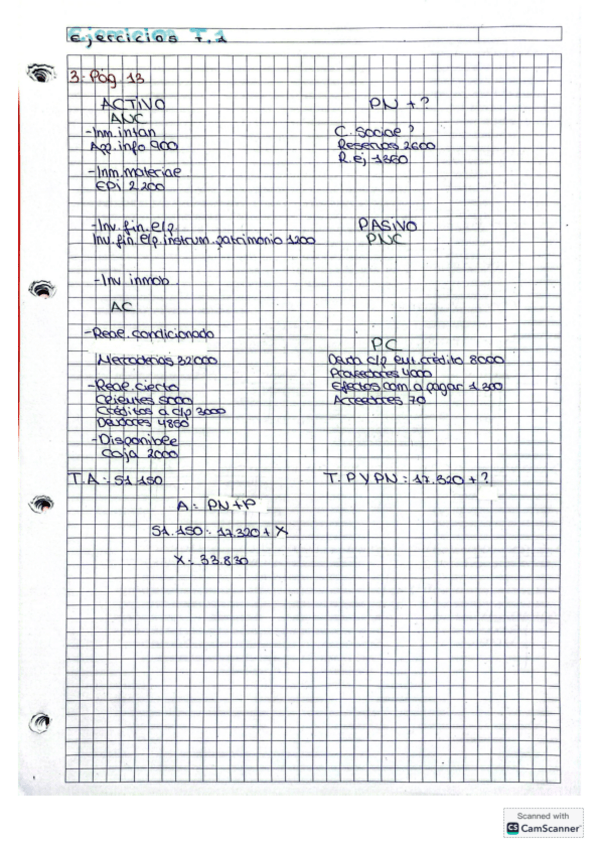 Ejercicios T.1
3-Pág 13
ACTIVO
ANC
-Inm.intan
App.info 900
-Inm.material
EPI 2.200
-Inv.fin.e/p
Inv.fin.e/p.instrum.patrimonio 1200
-Inv inmob
AC
-Real.condicionado
Mercaderías 32000
-Real.cierto
Clientes 5000
Créditos a c/p 3000
Deudores 4850
-Disponible
Caja 2000
T.A: 51.150
PN + ?
C. Social ?
Reservas 2600
R.ej 1350
PASIVO
PNC
PC
Deuda c/p ent.crédito 8000
Proveedores 4000
Efectos com.a pagar 1.300
Acreedores 70
T.P y PN: 17.320 + ?
A: PN+P
51.150: 17.320 + X
X: 33.830
Scanned with
CS CamScanner